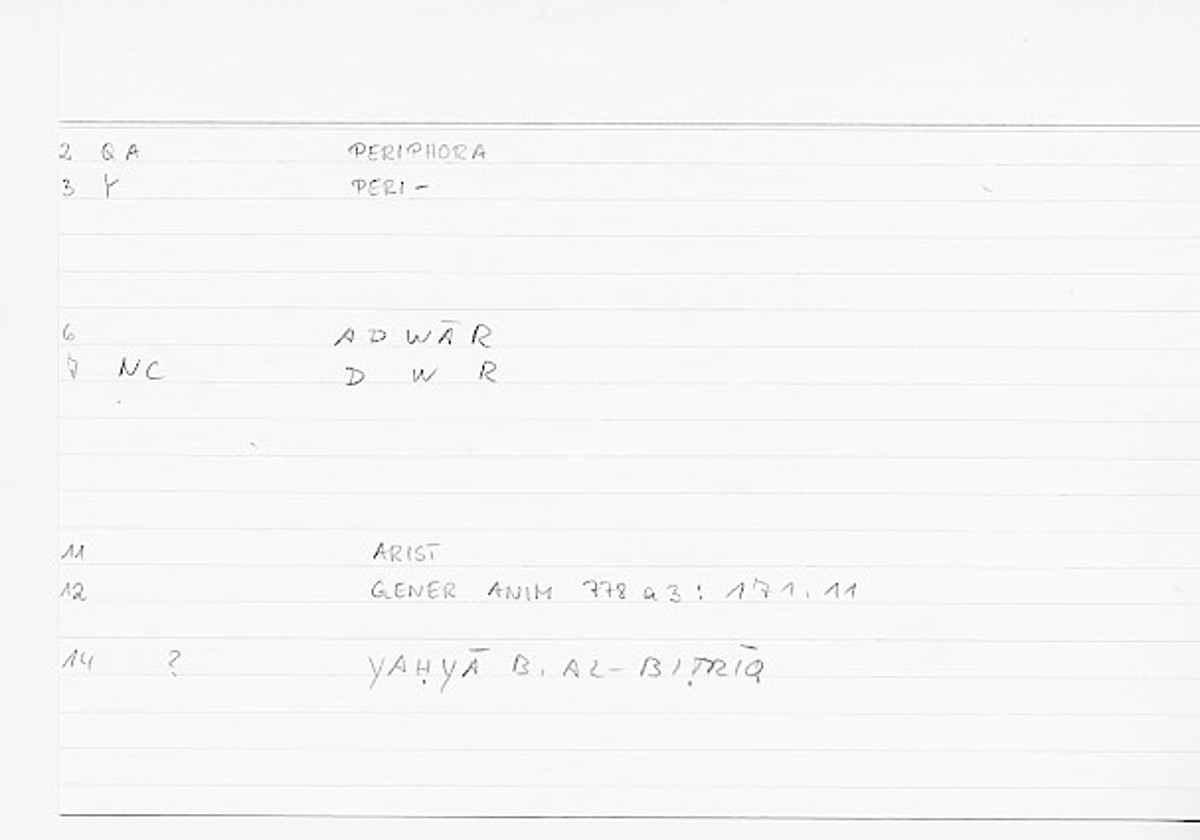 2 QA PERIPHORA
3 Y PERI-
6 ADWĀR
7 NC D W R
11 ARIST
12 GENER ANIM 778 a 3 : 171.11
14 ? YAḤYĀ B. AL-BIṬRĪQ